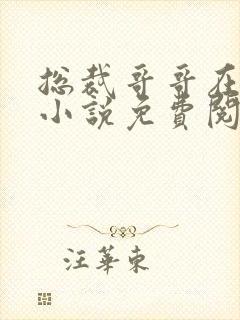 总裁哥哥在
小说免费阅
汪华东